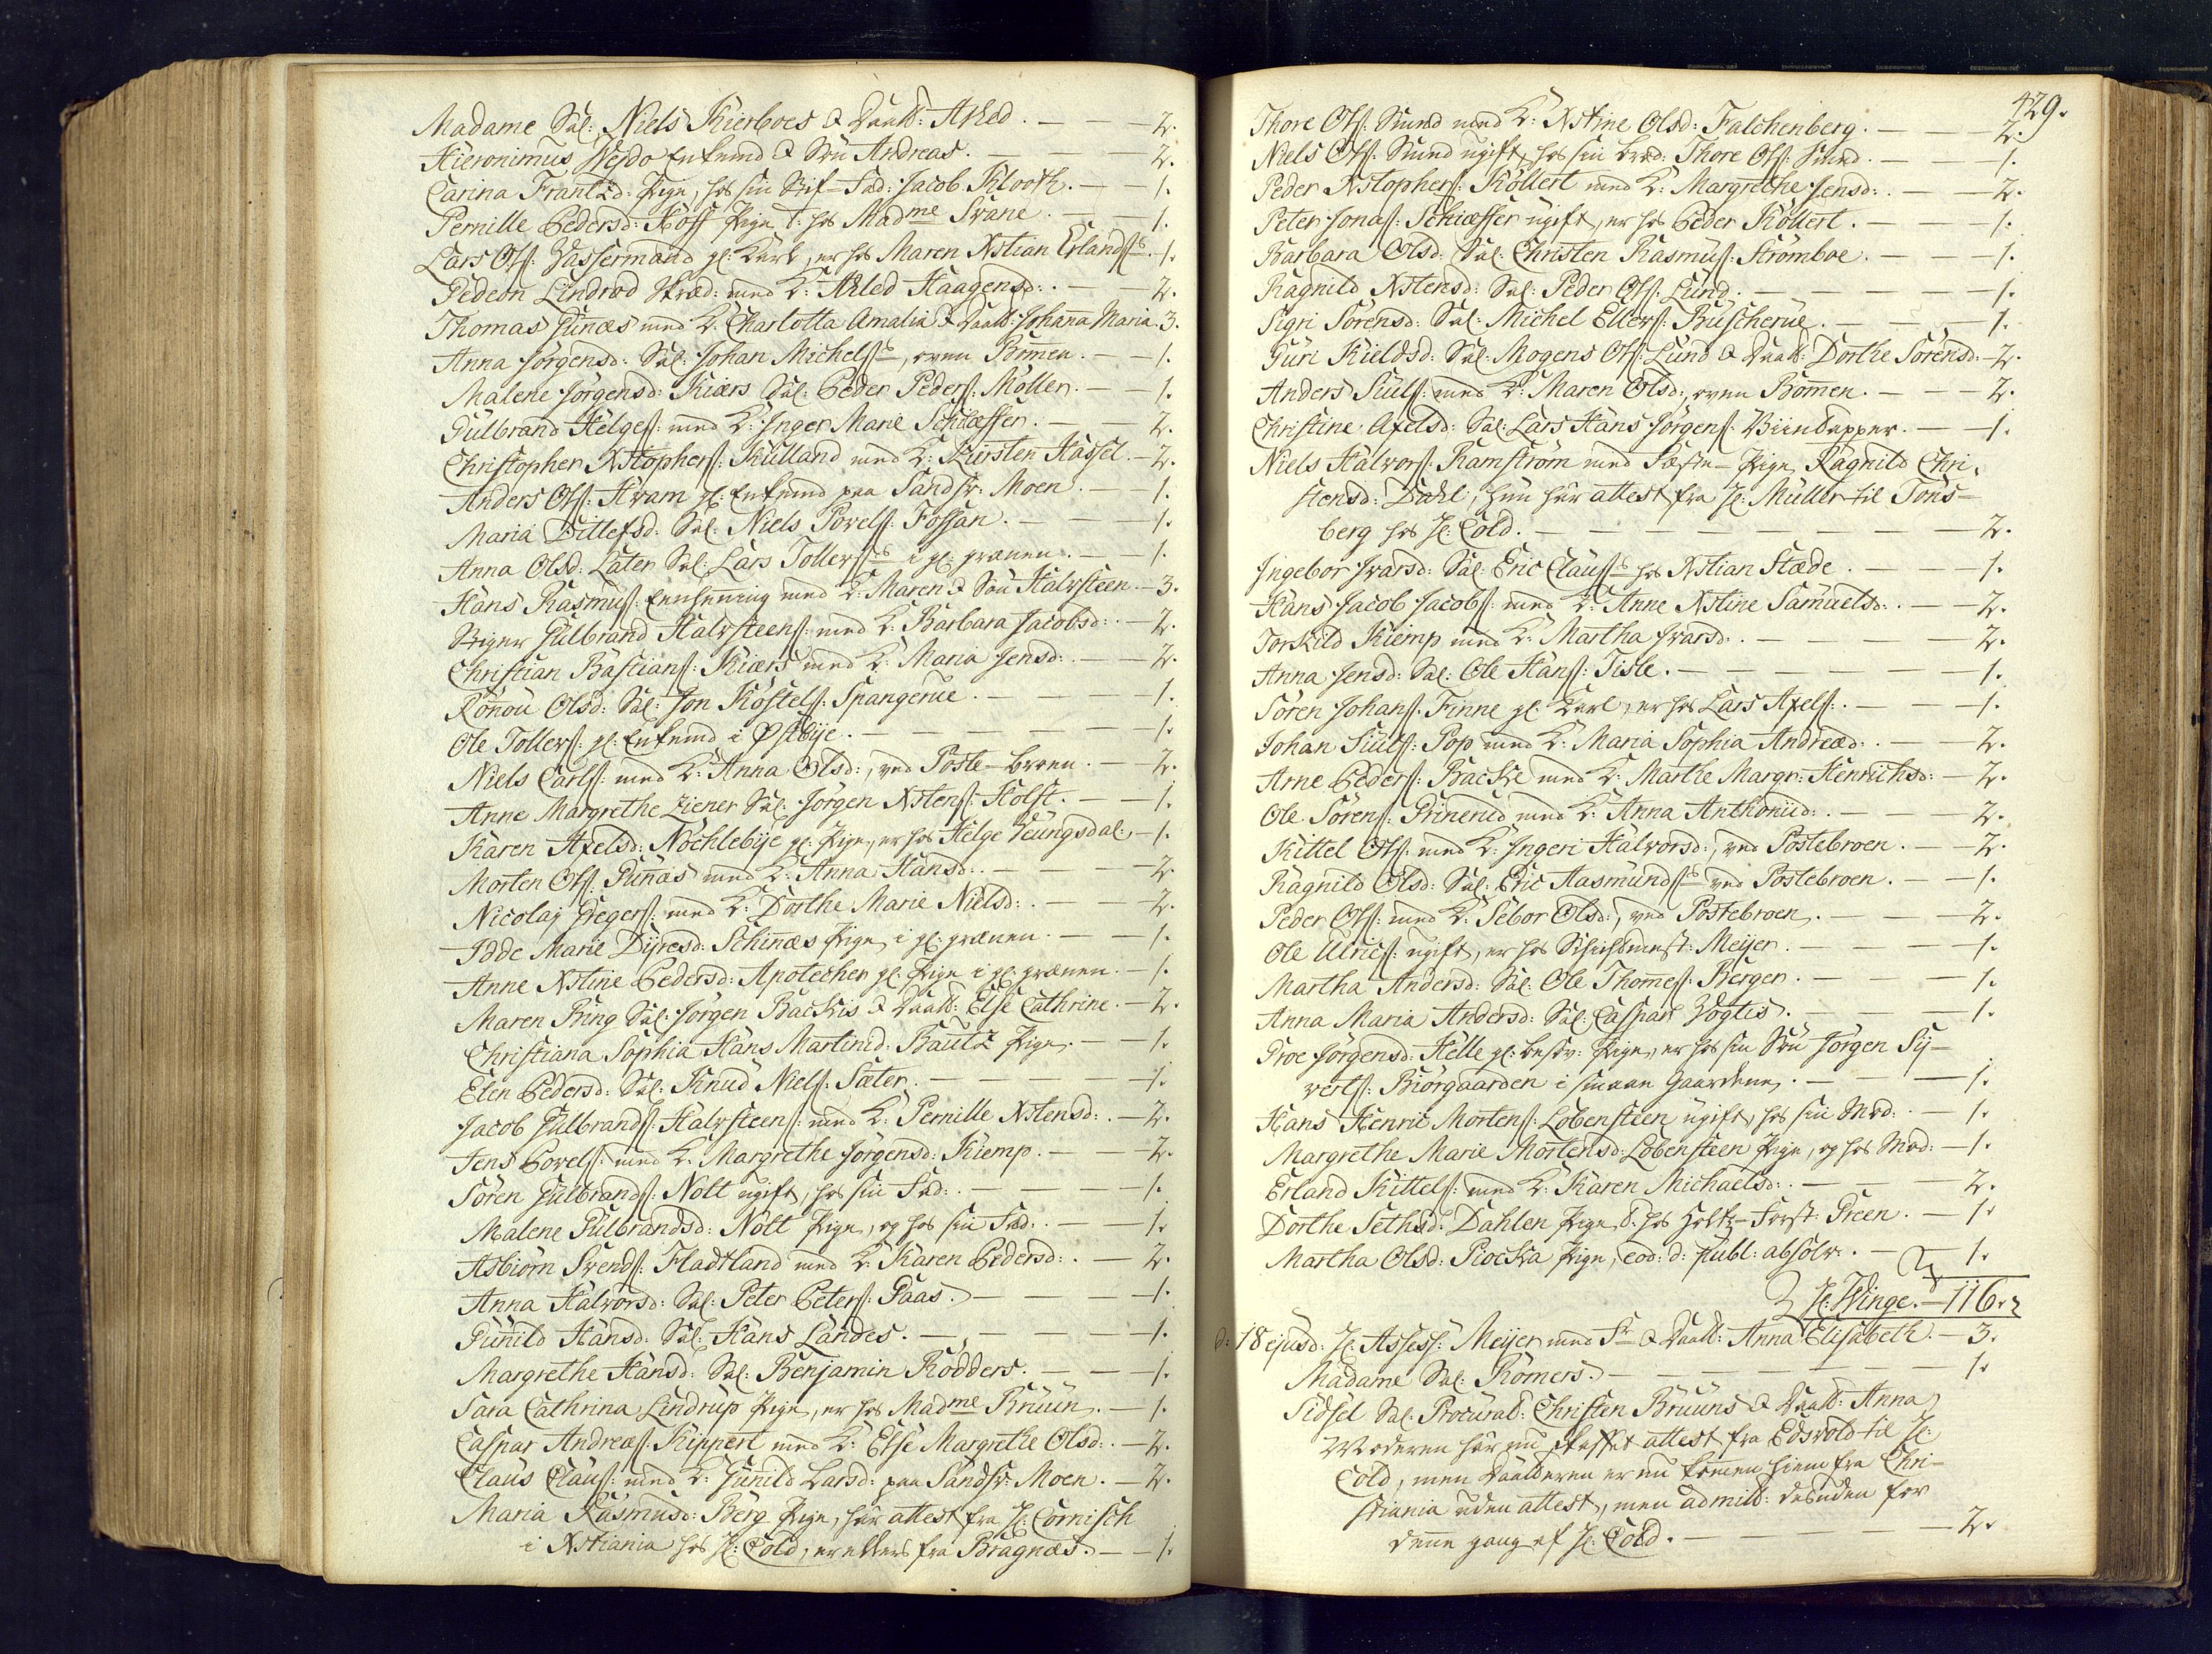 Madame Sal: Niels Kierboes & Daatt: Ahled. — — 2.
Hieronimus Wejdo Enkemd & Søn Andreas. — — 2.
Carina Frantzd: Pige, hos sin Stif-Fad: Jacob Klooth. — — 1.
Pernille Pedersd: Hoff Pige, T: hos Madme Svane. — — 1.
Lars Ols: Wassermand gl: Karl, er hos Maren Xstian Erlands. — 1.
Gedeon Lindrod Skræd: med K: Ahled Haagensd: — — 2.
Thomas Gunnæs med K: Charlotta Amalia & Daatt: Johanna Maria. 3.
Anna Jørgensd: Sal: Johan Michels:, oven Bommen. — — 1.
Malene Jørgensd: Kiærs Sal: Peder Peders: Møller. — — 1.
Gulbrand Helges: med K: Inger Marie Schæffer. — — 2.
Christopher Xstophers: Kulland med K: Kirsten Hassel. — 2.
Anders Ols: Hvam gl: Enkemd paa Sandsv: Moen. — 1.
Maria Ditlefsd: Sal: Niels Povels: Fossan. — — 1.
Anna Olsd: Låter Sal: Lars Tollers: i gl: grænen. — — 1.
Hans Rasmus: Eenhenning med K: Maren & Søn Halvsteen. — 3.
Stiger Gulbrand Halvsteens: med K: Barbara Jacobsd: — 2.
Christian Bastians: Kiærs med K: Maria Jensd: — — 2.
Rønnou Olsd: Sal: Jon Kostels: Spangerue. — — 1.
Ole Tollers: gl: Enkemd i Østbije. — — 1.
Niels Carls: med K: Anna Olsd:, ved Poste-broen. — 2.
Anne Margrethe Ziener Sal: Jørgen Xstens: Holst. — — 1.
Karen Axelsd: Nøchlebije gl: Pige, er hos Helge Veungsdal: — 1.
Morten Ols: Gunnæs med K: Anna Hansd: — — 2.
Nicolaj Gregers: med K: Dorthe Marie Nielsd: — — 2.
Idde Marie Dijresd: Schinnæs Pige, i gl: grænen. — — 1.
Anne Xstine Pedersd: Apotecher gl: Pige i gl: grænen. — 1.
Maren Ring Sal: Jørgen Backis & Daatt: Else Cathrine. — 2.
Christiana Sophia Hans Martinid: Bautz Pige. — — 1.
Elen Pedersd: Sal: Knud Niels: Sæter. — — 1.
Jacob Gulbrands: Halvsteens: med K: Pernille Xstensd: — 2.
Jens Povels: med K: Margrethe Jørgensd: Kiemp. — — 2.
Søren Gulbrands: Nolt ugift, hos sin Fad: — — 1.
Malene Gulbrandsd: Nolt Pige, og hos sin Fad: — — 1.
Asbiørn Svends: Fladtland med K: Karen Pedersd: — 2.
Anna Halvorsd: Sal: Peter Peters: Paas. — — 1.
Gunild Hansd: Sal: Hans Landes. — — 1.
Margrethe Hansd: Sal: Benjamin Rødders. — — 1.
Sara Cathrina Lindrup Pige, er hos Madme Bruun. — 1.
Caspar Andreas: Kippert med K: Else Margrethe Olsd: — 2.
Claus Claus: med K: Gunild Larsd: paa Sandsv: Moen. — 2.
Maria Rasmusd: Berg Pige, har attest fra H: Cornisch
i Xstiania hos H: Cold, er ellers fra Bragnæs. — — 1.
429.
Thore Ols: Sund med K: Xstine Olsd: Falchenberg. — — 2.
Niels Ols: Sund ugift, hos sin brod: Thore Ols: Sund. — — 1.
Peder Xstophers: Køllert med K: Margrethe Jensd: — — 2.
Peter Jonas: Schæffer ugift, er hos Peder Køllert. — — 1.
Barbara Olsd: Sal: Christen Rasmus: Strømboe. — — 1.
Ragnild Xstensd: Sal: Peder Ols: Lund. — — 1.
Sigri Sørensd: Sal: Michel Ellers: Buscherue. — — 1.
Guri Kieldsd: Sal: Mogens Ols: Lund & Daatt: Dorthe Sørensd: — 2.
Anders Juls: med K: Maren Olsd:, oven Bommen. — — 2.
Christine Axelsd: Sal: Lars Hans Jørgens: Viintapper. — — 1.
Niels Halvors: Ramstrøm med Fæste-Pige, Ragnild Chri-
stensd: Dahl, hun har attest fra H: Müller til Tøns-
berg hos H: Cold. — — 2.
Ingebor Ivarsd: Sal: Eric Claus: hos Xstian Stæde. — — 1.
Hans Jacob Jacobs: med K: Anne Xstine Samuelsd: — — 2.
Torskild Kiemp med K: Martha Ivarsd: — — 2.
Anna Jensd: Sal: Ole Hans: Tisle. — — 1.
Søren Johans: Finne gl: Karl, er hos Lars Axels: — — 1.
Johan Juls: Pop med K: Maria Sophia Andreæd: — — 2.
Arne Peders: Backe med K: Marthe Margr: Henrichsd: — 2.
Ole Sørens: Grinerud med K: Anna Anthonid: — — 2.
Kittel Ols: med K: Ingeri Halvorsd:, ved Postebroen. — — 2.
Ragnild Olsd: Sal: Eric Aasmunds: ved Postebroen. — — 1.
Peder Ols: med K: Sebor Olsd:, ved Postebroen. — — 2.
Ole Ulrics: ugift, er hos Schichtmest: Meijer. — — 1.
Martha Andersd: Sal: Ole Thommes: Berger. — — 1.
Anna Maria Andersd: Sal: Caspar Vogtis. — — 1.
Groe Jørgensd: Helle gl: besov: Pige, er hos sin Søn Jørgen Sij-
verts: Biørgaarden i smaae Gaardene. — — 1.
Hans Henric Mortens: Løbensteen ugift, hos sin Mod: — 1.
Margrethe Marie Mortensd: Løbensteen Pige, og hos Mod: — 1.
Erland Kittels: med K: Karen Michaelsd: — — 2.
Dorthe Sethsd: Dahlen Pige, T: hos Holtz-Først: Green. — 1.
Martha Olsd: Rocka Pige, eod: d: publ: absolv: — 1.
H: Winge. — 116.
d: 18 ejusd: H: Assess: Meijer med Fr & Daatt: Anna Elisabeth. — 3.
Madame Sal: Rømers. — — 1.
Sidsel Sal: Procurat: Christen Bruuns & Daatt: Anna
Moderen har nu skaffet attest fra Edsvold til H:
Cold, men Daatteren er nu kommen hiem fra Chri-
stiania uden attest, men admitt: desuden for
denne gang af H: Cold. — — 2.